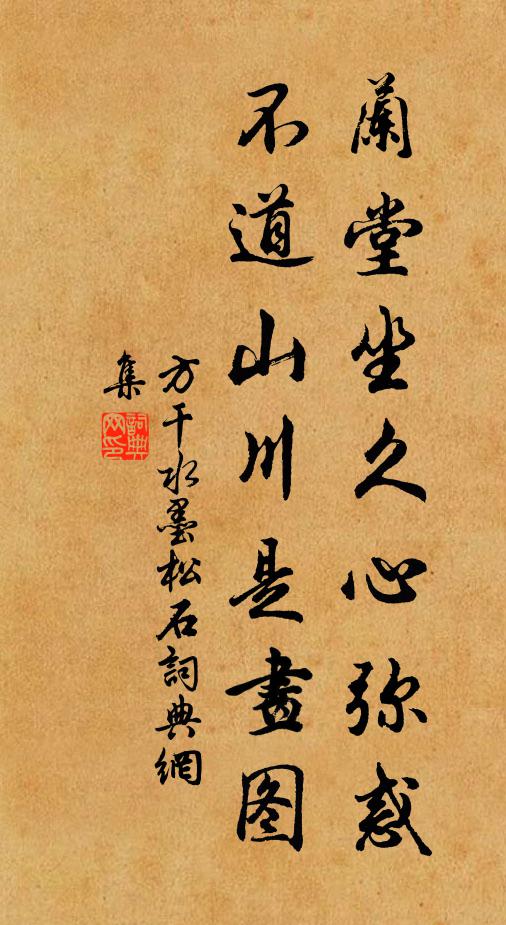 蘭堂坐久心弥惑
不道山川是畫图
方干水墨松石詞典網
集
詞典网印